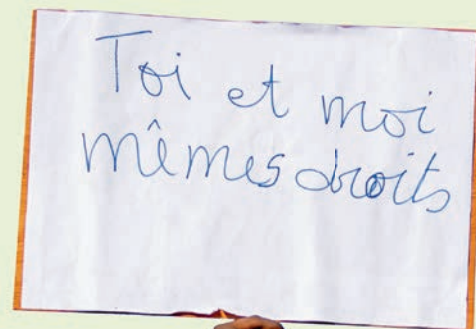 Toi et moi
mêmes droits